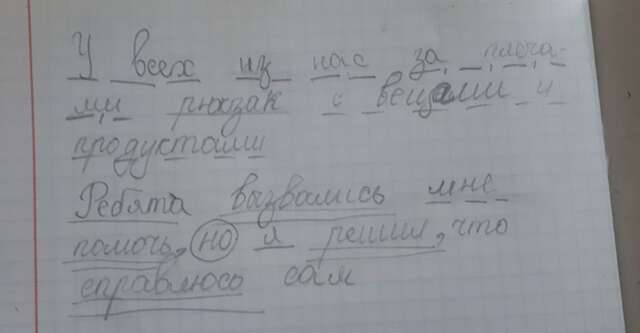 У всех из нас за плеча-
ми рюкзак с вещами и
продуктами
Ребята вызвались мне
помочь, но я решил, что
справлюсь сам